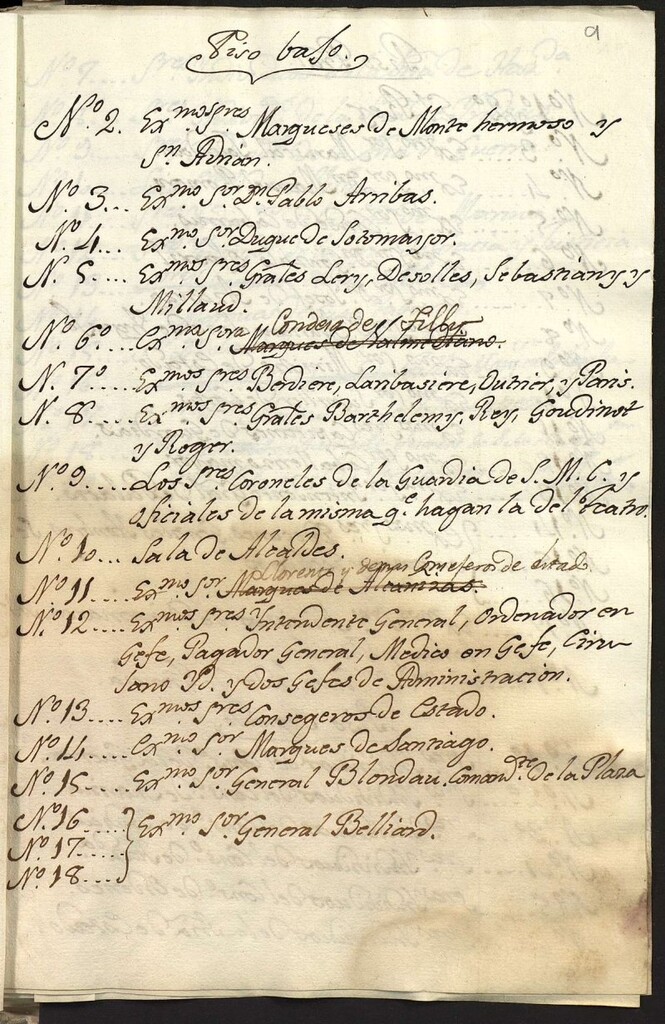 9
Piso baſo.
Nº. 2. Ex.mos Sres Marqueses de Monte hermoso y
Sn. Adrian.
Nº. 3... Ex.mo Sor. Dn. Pablo Arribas.
Nº. 4... Ex.mo Sor. Duque de Sotomayor.
N. 5.... Ex.mos Sres Grales Lery, Desolles, Sebastiany y
Millaud.
Condesa de Filly
Nº. 6º... Ex.ma Sora. Marques de
N. 7º... Ex.mos Sres Berdiere, Laribasiere, Dutrier, y Paris.
N. 8.... Ex.mos Sres Grales Barthelemy, Rey, Goudinot
y Roger.
Nº. 9.... Los Sres Coroneles de la Guardia de S. M. C. y
oficiales de la misma qe. hagan la del Teatro.
Nº. 10... Sala de Alcaldes.
Llorente y demas Consejeros de Estado
Nº. 11.... Ex.mo Sor. Marques de
Nº. 12.... Ex.mos Sres Intendente General, Ordenador en
Gefe, Pagador General, Medico en Gefe, Ciru
jano Yd. y dos Gefes de Administracion.
Nº. 13.... Ex.mos Sres Consegeros de Estado.
Nº. 14.... Ex.mo Sor. Marques de Santiago.
Nº. 15.... Ex.mo Sor. General Blondau, Comandte. de la Plaza
Nº. 16.... } Ex.mo Sor. General Belliard.
Nº. 17....
Nº. 18....